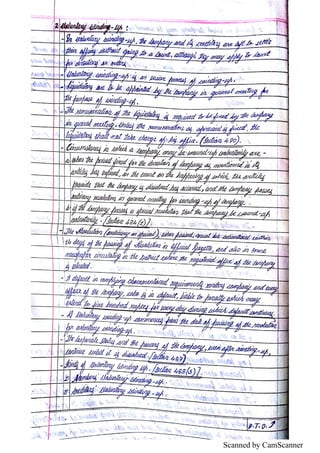 2. Voluntary Winding-Up :
- In voluntary winding-up, the company and its creditors are left to settle
their affairs without going to a court, although they may apply to court
for directions or orders.
- Voluntary winding-up is an easier process of winding-up.
- Liquidators are to be appointed by the company in general meeting for
the purpose of winding-up.
- The remuneration of the liquidators is required to be fixed by the company
in general meeting. Unless the remuneration as aforesaid is fixed, the
liquidators shall not take charge of his office. (Section 490).
- Circumstances in which a company may be wound-up voluntarily are -
a. when the period fixed for the duration of company as mentioned in its
articles has expired, or the event on the happening of which the articles
provide that the company is dissolved has occurred, and the company passes
ordinary resolution in general meeting for winding-up of company.
b. if the company passes a special resolution that the company be wound-up
voluntarily. (Section 484(1)).
- The Resolution (ordinary or special), when passed, must be advertised within
14 days of the passing of resolution in official gazette, and also in some
newspaper circulating in the district where the registered office of the company
is situated.
- If default in complying requirements renders company and every
officer of the company, who is in default, liable to penalty which may
extend to five hundred rupees for every day during which default continues.
- A voluntary winding-up commences from the date of passing of the resolution
for voluntary winding-up.
- The corporate status and the powers of the company, even after winding-up,
continue until it is dissolved. (Section 487)
- Kinds of voluntary winding up. (Section 488(5)).
I Members' voluntary winding-up.
II Creditors' voluntary winding-up.
P.T.O.
Scanned by CamScanner